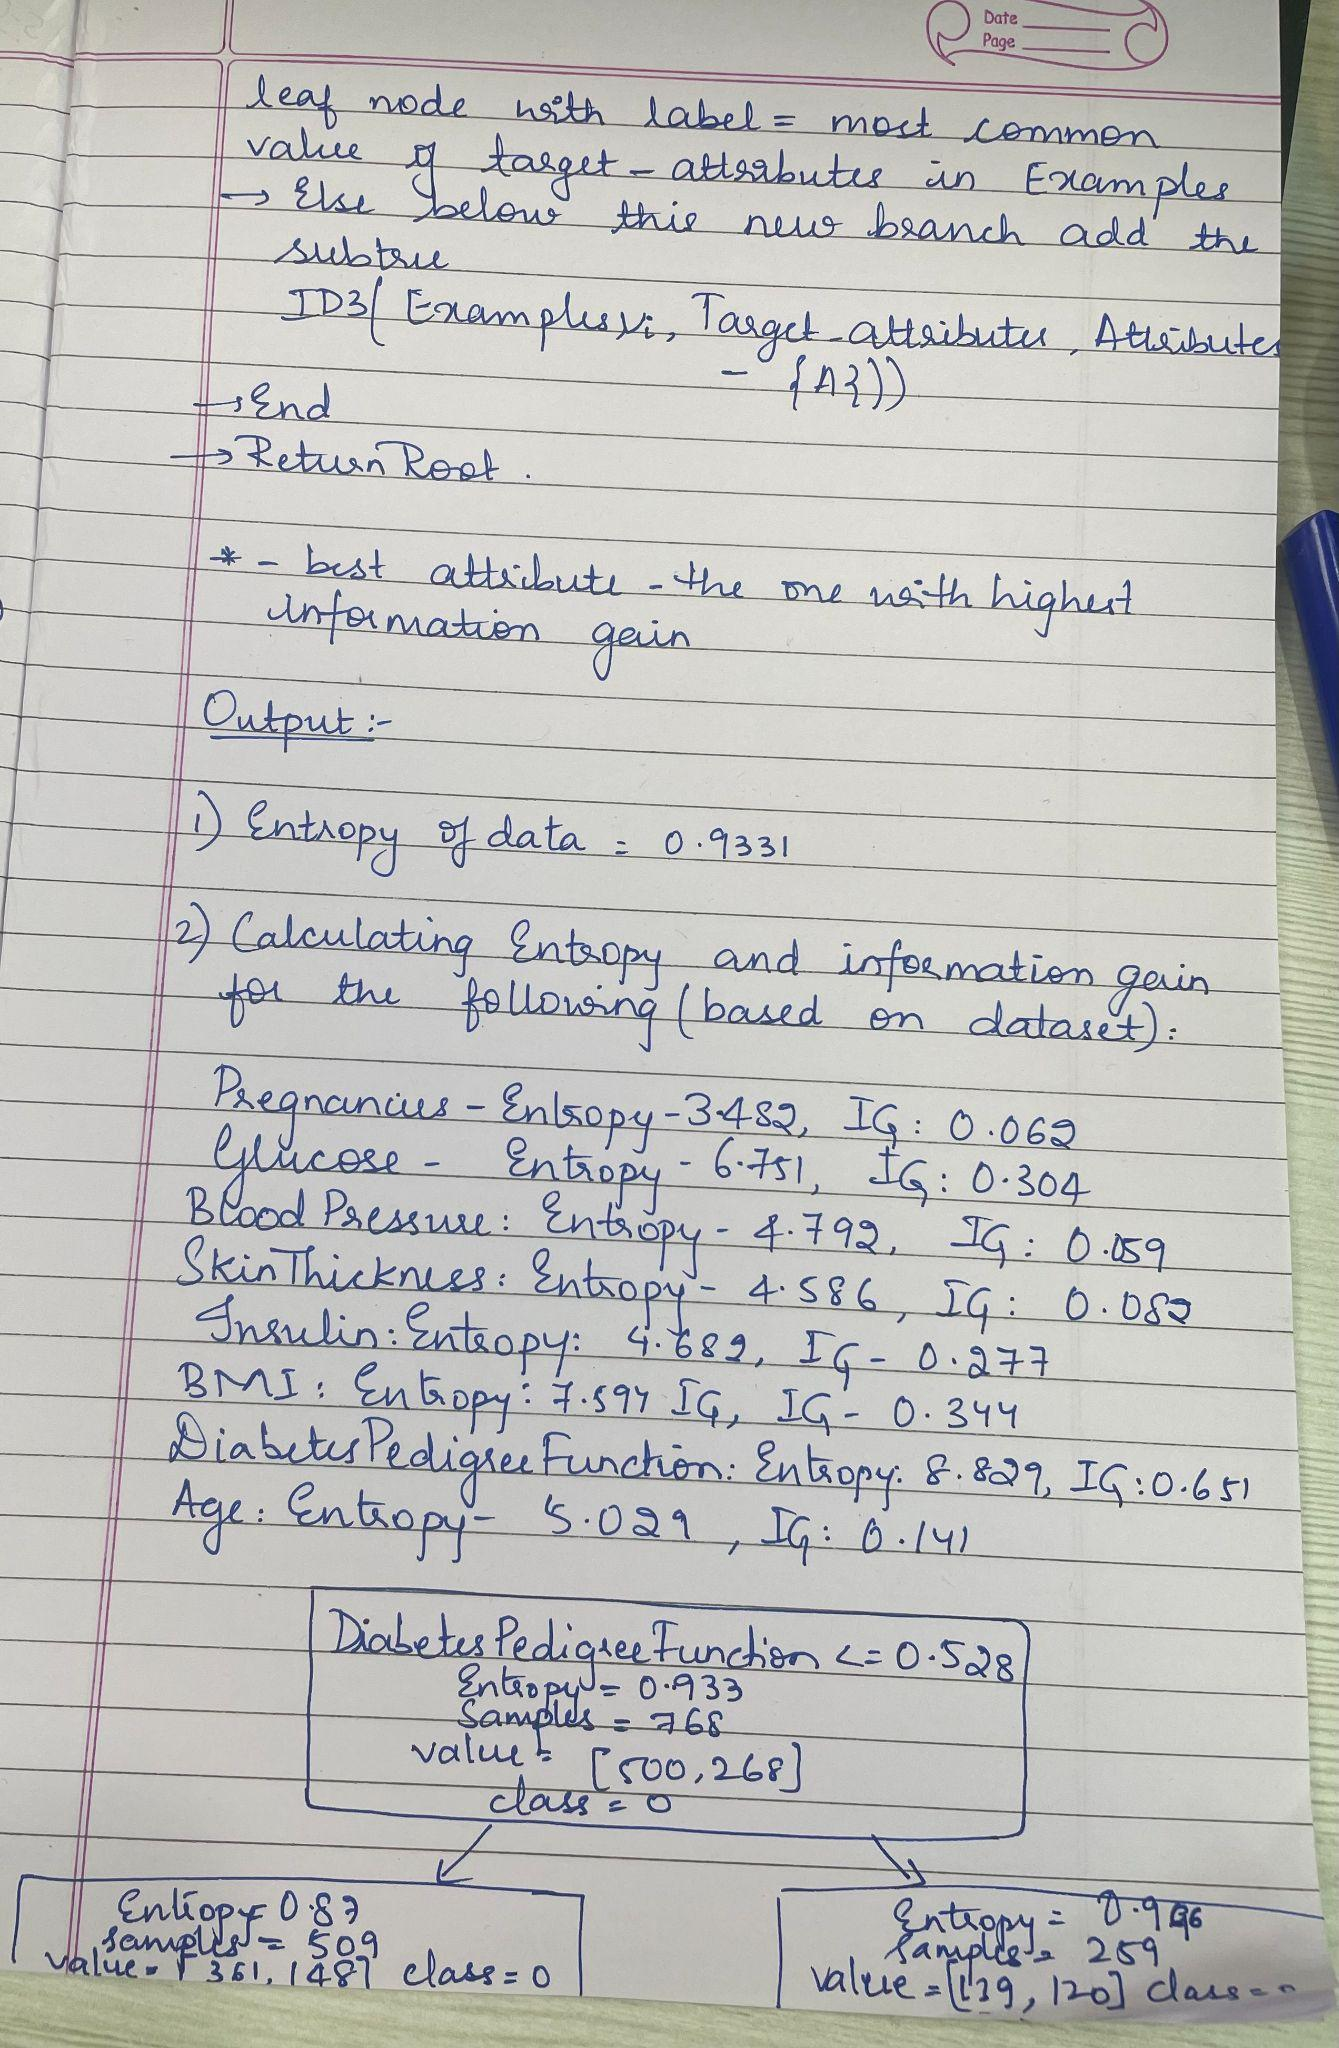 Date
Page
leaf node with label = most common
value of target-attributes in Examples
→ Else below this new branch add the
subtree
ID3( Examplesvi, Target-attributes, Attributes
- {A}))
→ End
→ Return Root.
* - best attribute - the one with highest
information gain
Output :-
1) Entropy of data = 0.9331
2) Calculating Entropy and information gain
for the following (based on dataset):
Pregnancies - Entropy - 3.482, IG: 0.062
Glucose - Entropy - 6.751, IG: 0.304
Blood Pressure: Entropy - 4.792, IG: 0.059
SkinThickness: Entropy - 4.586, IG: 0.082
Insulin: Entropy: 4.682, IG - 0.277
BMI: Entropy: 7.594 IG, IG - 0.344
DiabetesPedigreeFunction: Entropy: 8.829, IG: 0.651
Age: Entropy - 5.029, IG: 0.141
DiabetesPedigreeFunction <= 0.528
Entropy = 0.933
Samples = 768
value = [500, 268]
class = 0
Entropy = 0.87
samples = 509
value = [361, 148] class = 0
Entropy = 0.996
samples = 259
value = [139, 120] class =